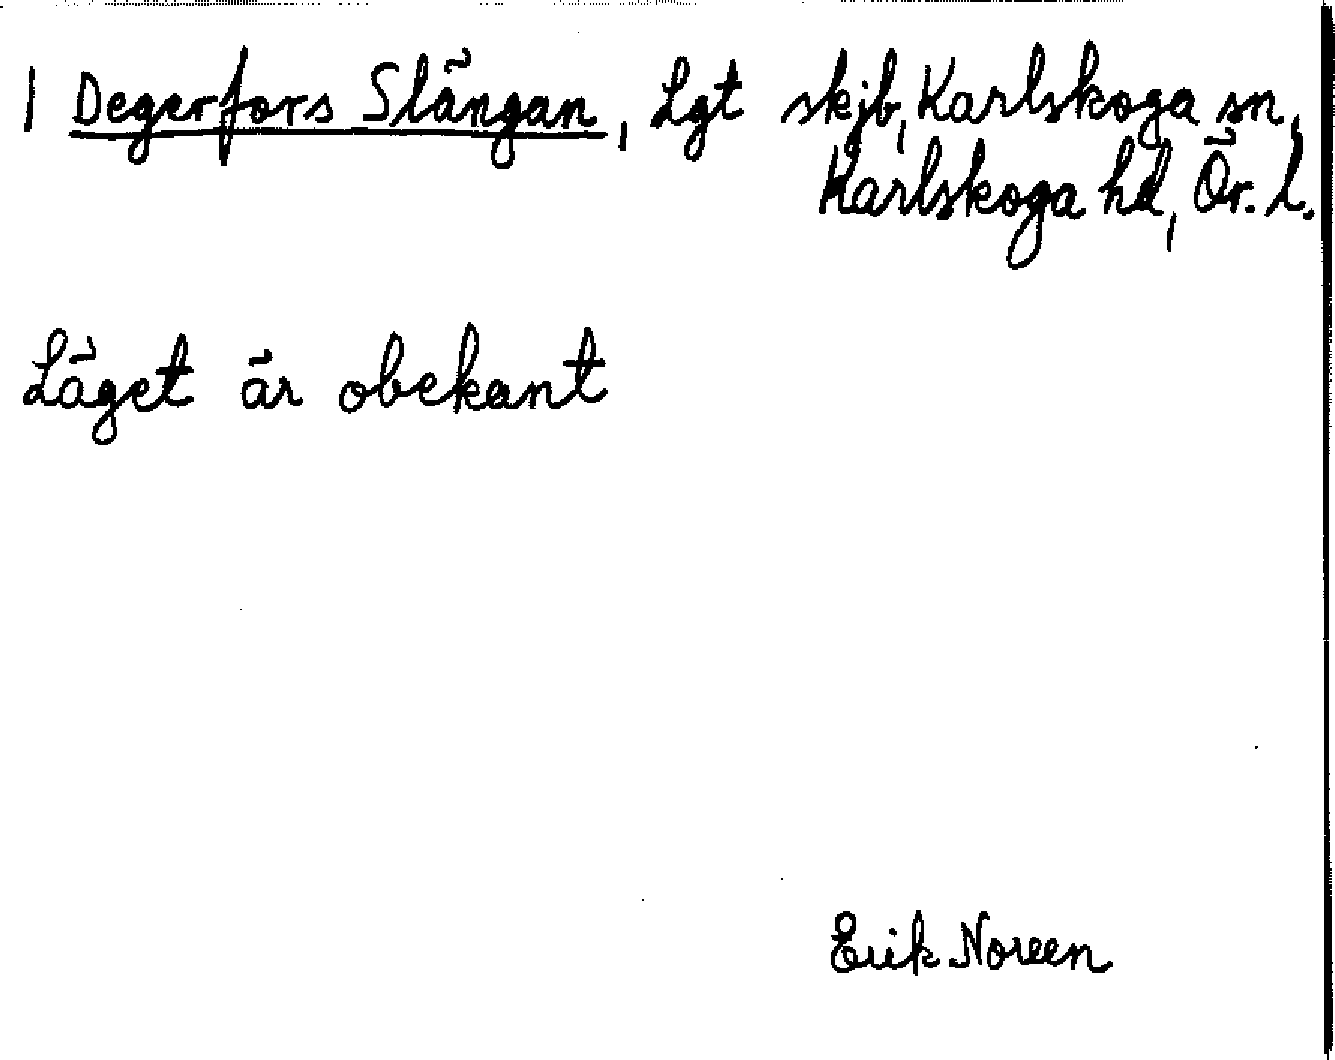 1 Degerfors Slängan, Lgt skjb, Karlskoga sn,
Karlskoga hd, Ör. L.
Läget är obekant
Erik Noreen